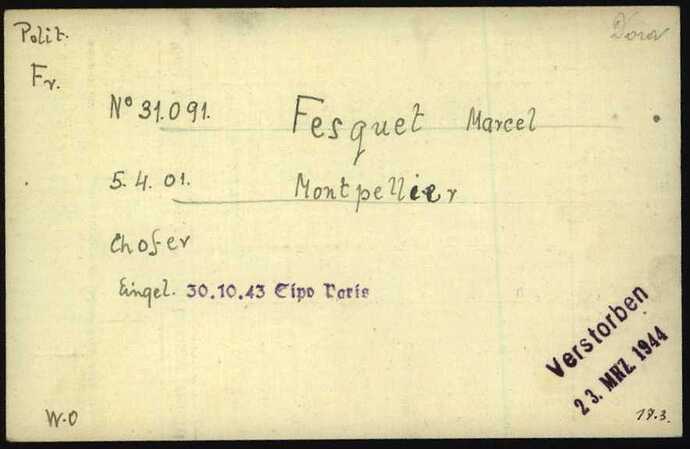 Polit.
Dora
Fr.
Nº 31.091. Fesquet Marcel
5.4.01. Montpellier
Chofer
Eingel. 30.10.43 Sipo Paris
Verstorben
23. MRZ. 1944
W-O
17.3.